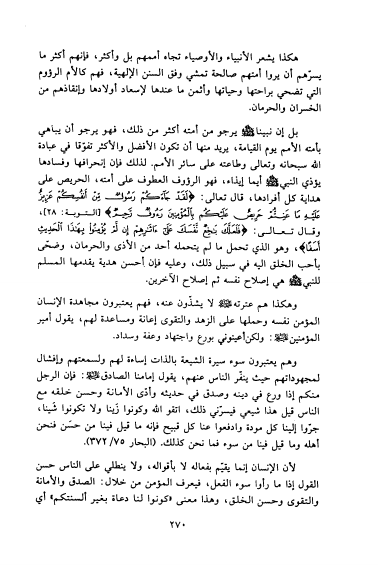 هكذا يشعر الأنبياء والأوصياء تجاه أممهم بل وأكثر، فإنهم أكثر ما
يسرّهم أن يروا أمتهم صالحة تمشي وفق السنن الإلهية، فهم كالأم الرؤوم
التي تضحي براحتها وحياتها وأثمن ما عندها لإسعاد أولادها وإنقاذهم من
الخسران والحرمان.
بل إن نبينا ﷺ يرجو من أمته أكثر من ذلك، فهو يرجو أن يباهي
بأمته الأمم يوم القيامة، يريد منها أن تكون الأفضل والأكثر تفوّقا في عبادة
الله سبحانه وتعالى وطاعته على سائر الأمم. لذلك فإن إنحرافها وفسادها
يؤذي النبي ﷺ أيما إيذاء، فهو الرؤوف العطوف على أمته، الحريص على
هداية كل أفرادها، قال تعالى: ﴿لَقَدْ جَاءَكُمْ رَسُولٌ مِنْ أَنْفُسِكُمْ عَزِيزٌ
عَلَيْهِ مَا عَنِتُّمْ حَرِيصٌ عَلَيْكُمْ بِالْمُؤْمِنِينَ رَءُوفٌ رَحِيمٌ﴾ [التوبة: ٢٨]،
وقال تعالى: ﴿فَلَعَلَّكَ بَاخِعٌ نَفْسَكَ عَلَى آثَارِهِمْ إِنْ لَمْ يُؤْمِنُوا بِهَذَا الْحَدِيثِ
أَسَفًا﴾، وهو الذي تحمل ما لم يتحمله أحد من الأذى والحرمان، وضحّى
بأحب الخلق اليه في سبيل ذلك، وعليه فإن أحسن هدية يقدمها المسلم
للنبي ﷺ هي إصلاح نفسه ثم إصلاح الآخرين.
وهكذا هم عترته لا يشذّون عنه، فهم يعتبرون مجاهدة الإنسان
المؤمن نفسه وحملها على الزهد والتقوى إعانة ومساعدة لهم، يقول أمير
المؤمنين: ولكن أعينوني بورع واجتهاد وعفة وسداد.
وهم يعتبرون سوء سيرة الشيعة بالذات إساءة لهم ولسمعتهم وإفشال
لمجهوداتهم حيث ينفّر الناس عنهم، يقول إمامنا الصادق: فإن الرجل
منكم إذا ورع في دينه وصدق في حديثه وأدّى الأمانة وحسن خلقه مع
الناس قيل هذا شيعي فيسرّني ذلك، اتقو الله وكونوا زَينا ولا تكونوا شَينا،
جرّوا إلينا كل مودة وادفعوا عنا كل قبيح فإنه ما قيل فينا من حسَن فنحن
أهله وما قيل فينا من سوء فما نحن كذلك. (البحار ٧٥/ ٣٧٢).
لأن الإنسان إنما يقيّم بفعاله لا بأقواله، ولا ينطلي على الناس حسن
القول إذا ما رأوا سوء الفعل، فيعرف المؤمن من خلال: الصدق والأمانة
والتقوى وحسن الخلق، وهذا معنى «كونوا لنا دعاة بغير ألسنتكم» أي
٢٧٠